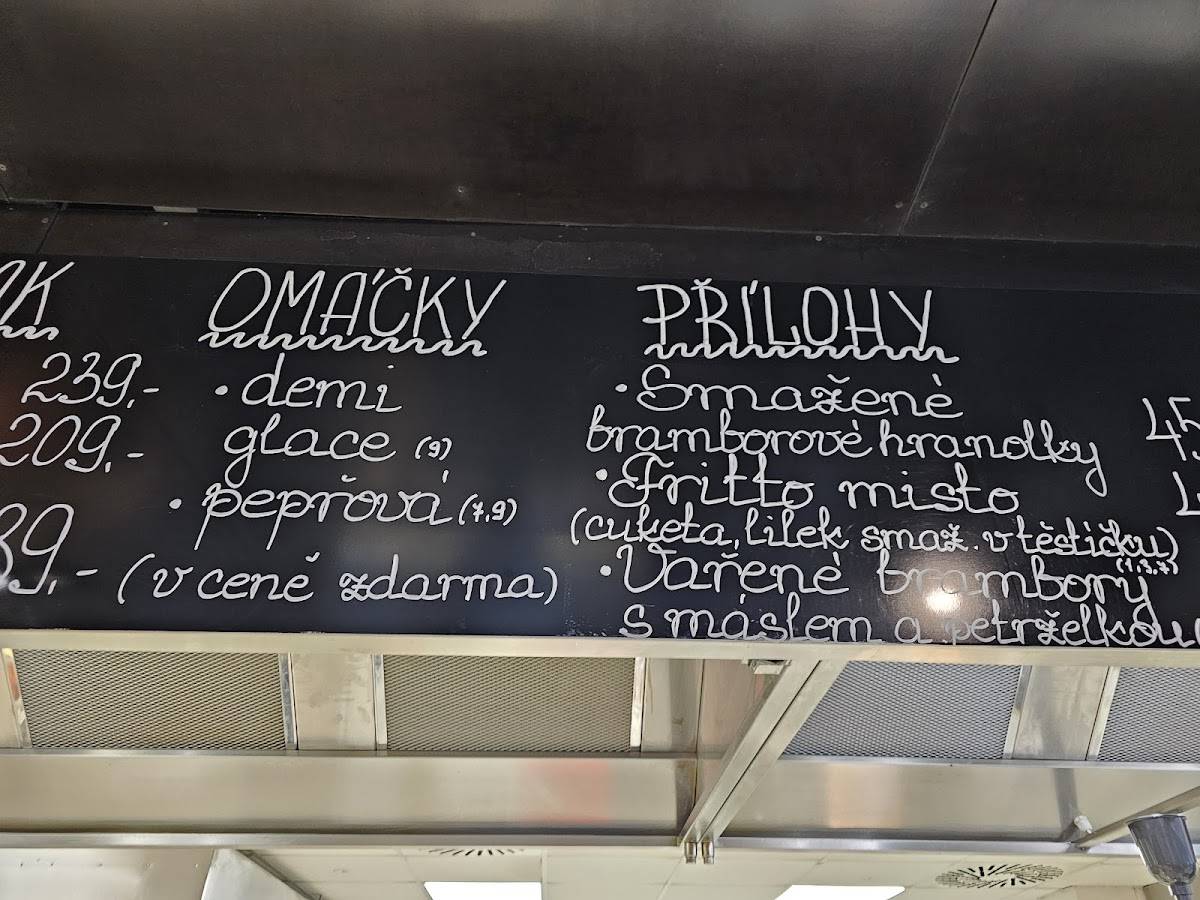 239,-
209,-
39,-
OMÁČKY
• demi
glace (9)
• pepřová (7,9)
(v ceně zdarma)
PŘÍLOHY
• Smažené
bramborové hranolky
• Fritto misto
(cuketa, lilek smaž. v těstíčku)
(1,3,7)
• Vařené brambory
s máslem a petrželkou
45